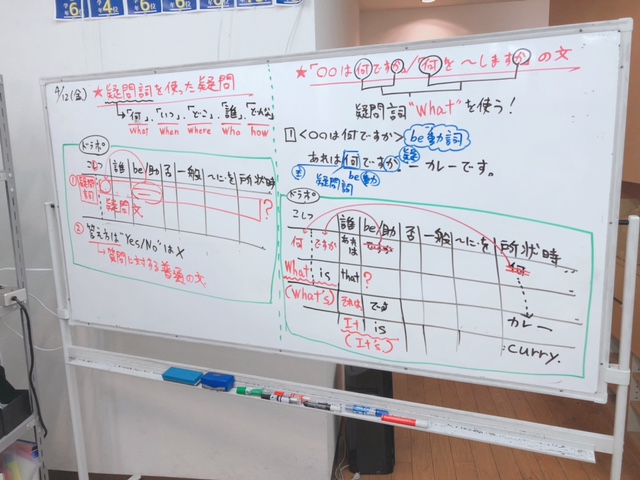 6位
4位
6位
6位
6位
9/12(金)
★疑問詞を使った疑問
→「何」、「いつ」、「どこ」、「誰」、「どんな」
what when where who how
ドラポ
こしつ 誰 be/助 否 一般 〜に・を 所状時
① 疑問詞
疑問文 ?
② 答え方は"Yes/No"は×
→質問に対する普通の文
★「〇〇は何ですか/何を〜しますかの文
疑問詞"what"を使う!
1 <〇〇は何ですか> be動詞
あれは何ですか。 ー カレーです。
疑問詞 be動
ドラポ
こしつ 誰 be/助 否 一般 〜に・を 所状時
何 ですか あれは ですか 何
What is that ?
(What's) それは です カレー
It is :curry.
(It's)